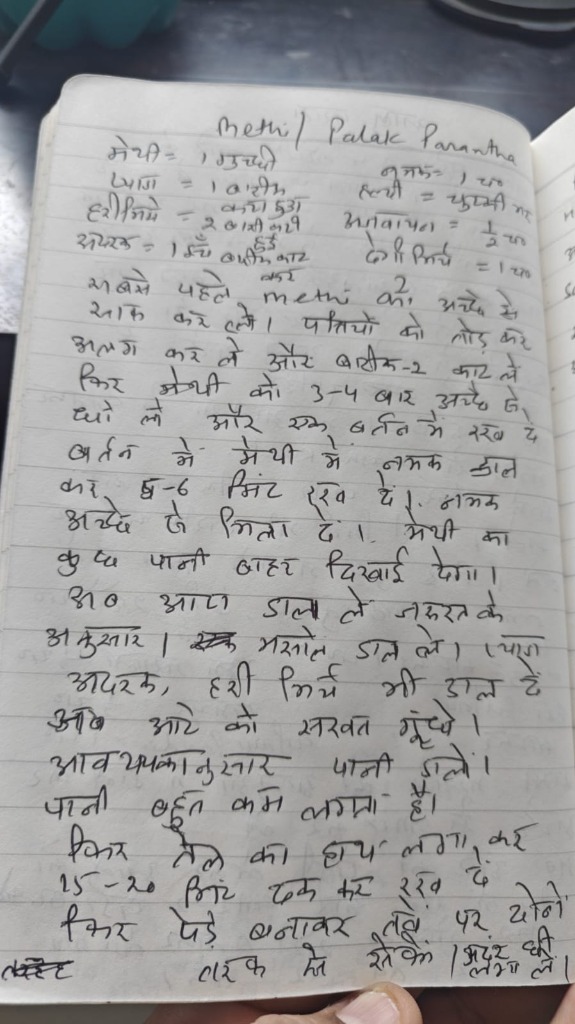 Methi / Palak Parantha
मेथी = 1 गुच्छी
नमक = 1 चम
प्याज = 1 बारीक कटा हुआ
हल्दी = चुटकी भर
हरी मिर्च = 2 बारीक कटी हुई
अजवायन = 1/2 चम
अदरक = 1 इँच बारीक काट कर
देगी मिर्च = 1 चम
सबसे पहले methi को अच्छे से
साफ कर लो। पत्तियों को तोड़ कर
अलग कर ले और बारीक-2 काट ले
फिर मेथी को 3-4 बार अच्छे से,
धो लो और एक बर्तन में रख दे
बर्तन में मेथी में नमक डाल
कर 5-6 मिंट रख दें। नमक
अच्छे से मिला दें। मेथी का
कुछ पानी बाहर दिखाई देगा।
अब आटा डाल ले जरुरत के
अनुसार। मसाले डाल ले। प्याज
अदरक, हरी मिर्च भी डाल दे
अब आटे को सख्त गूंधे।
आवश्यकानुसार पानी डाले।
पानी बहुत कम लगता है।
फिर तेल का हाथ लगा कर
15-20 मिंट ढक कर रख दें
फिर पेड़े बनाकर तवे पर दोनो
तरफ से सेंके। अंदर घी लगा ले।